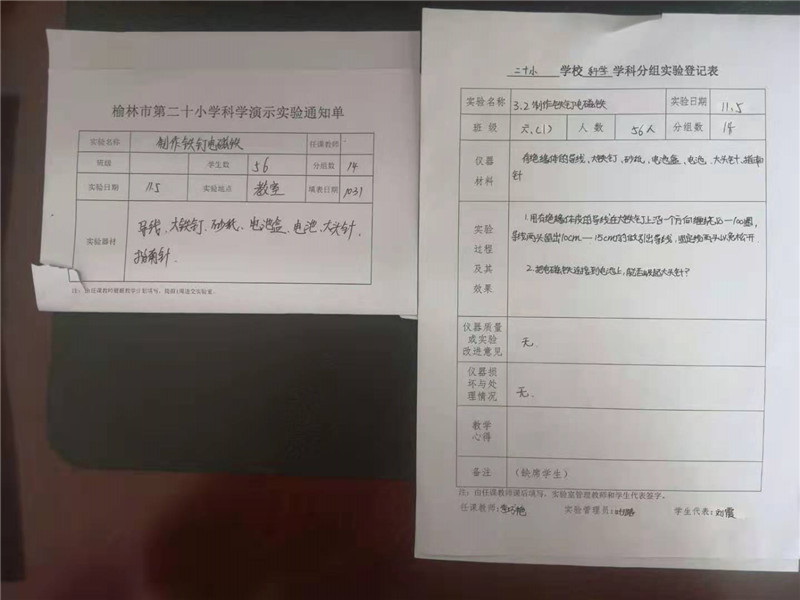 榆林市第二十小学科学演示实验通知单
实验名称 制作铁钉电磁铁 任课教师
班级 学生数 56 分组数 14
实验日期 11.5 实验地点 教室 填表日期 10.31
实验器材 导线、大铁钉、砂纸、电池盒、电池、大头针、
指南针.
注：由任课教师根据教学计划填写，提前1周送交实验室。
二十小 学校 科学 学科分组实验登记表
实验名称 3.2制作铁钉电磁铁 实验日期 11.5
班级 六.(1) 人数 56人 分组数 14
仪器材料 有绝缘体的导线,大铁钉,砂纸,电池盒,电池,大头针,指南
针
实验过程及其效果
1.用有绝缘体皮的导线在大铁钉上沿一个方向缠绕50—100圈,
导线两头留出10cm—15cm的做引出导线,固定两头以免松开.
2.把电磁铁连接到电池上,能否吸起大头针?
仪器质量或实验改进意见 无.
仪器损坏与处理情况 无.
教学心得
备注 (缺席学生)
注：由任课教师课后填写，实验室管理教师和学生代表签字。
任课教师: 实验管理员: 学生代表:刘霞